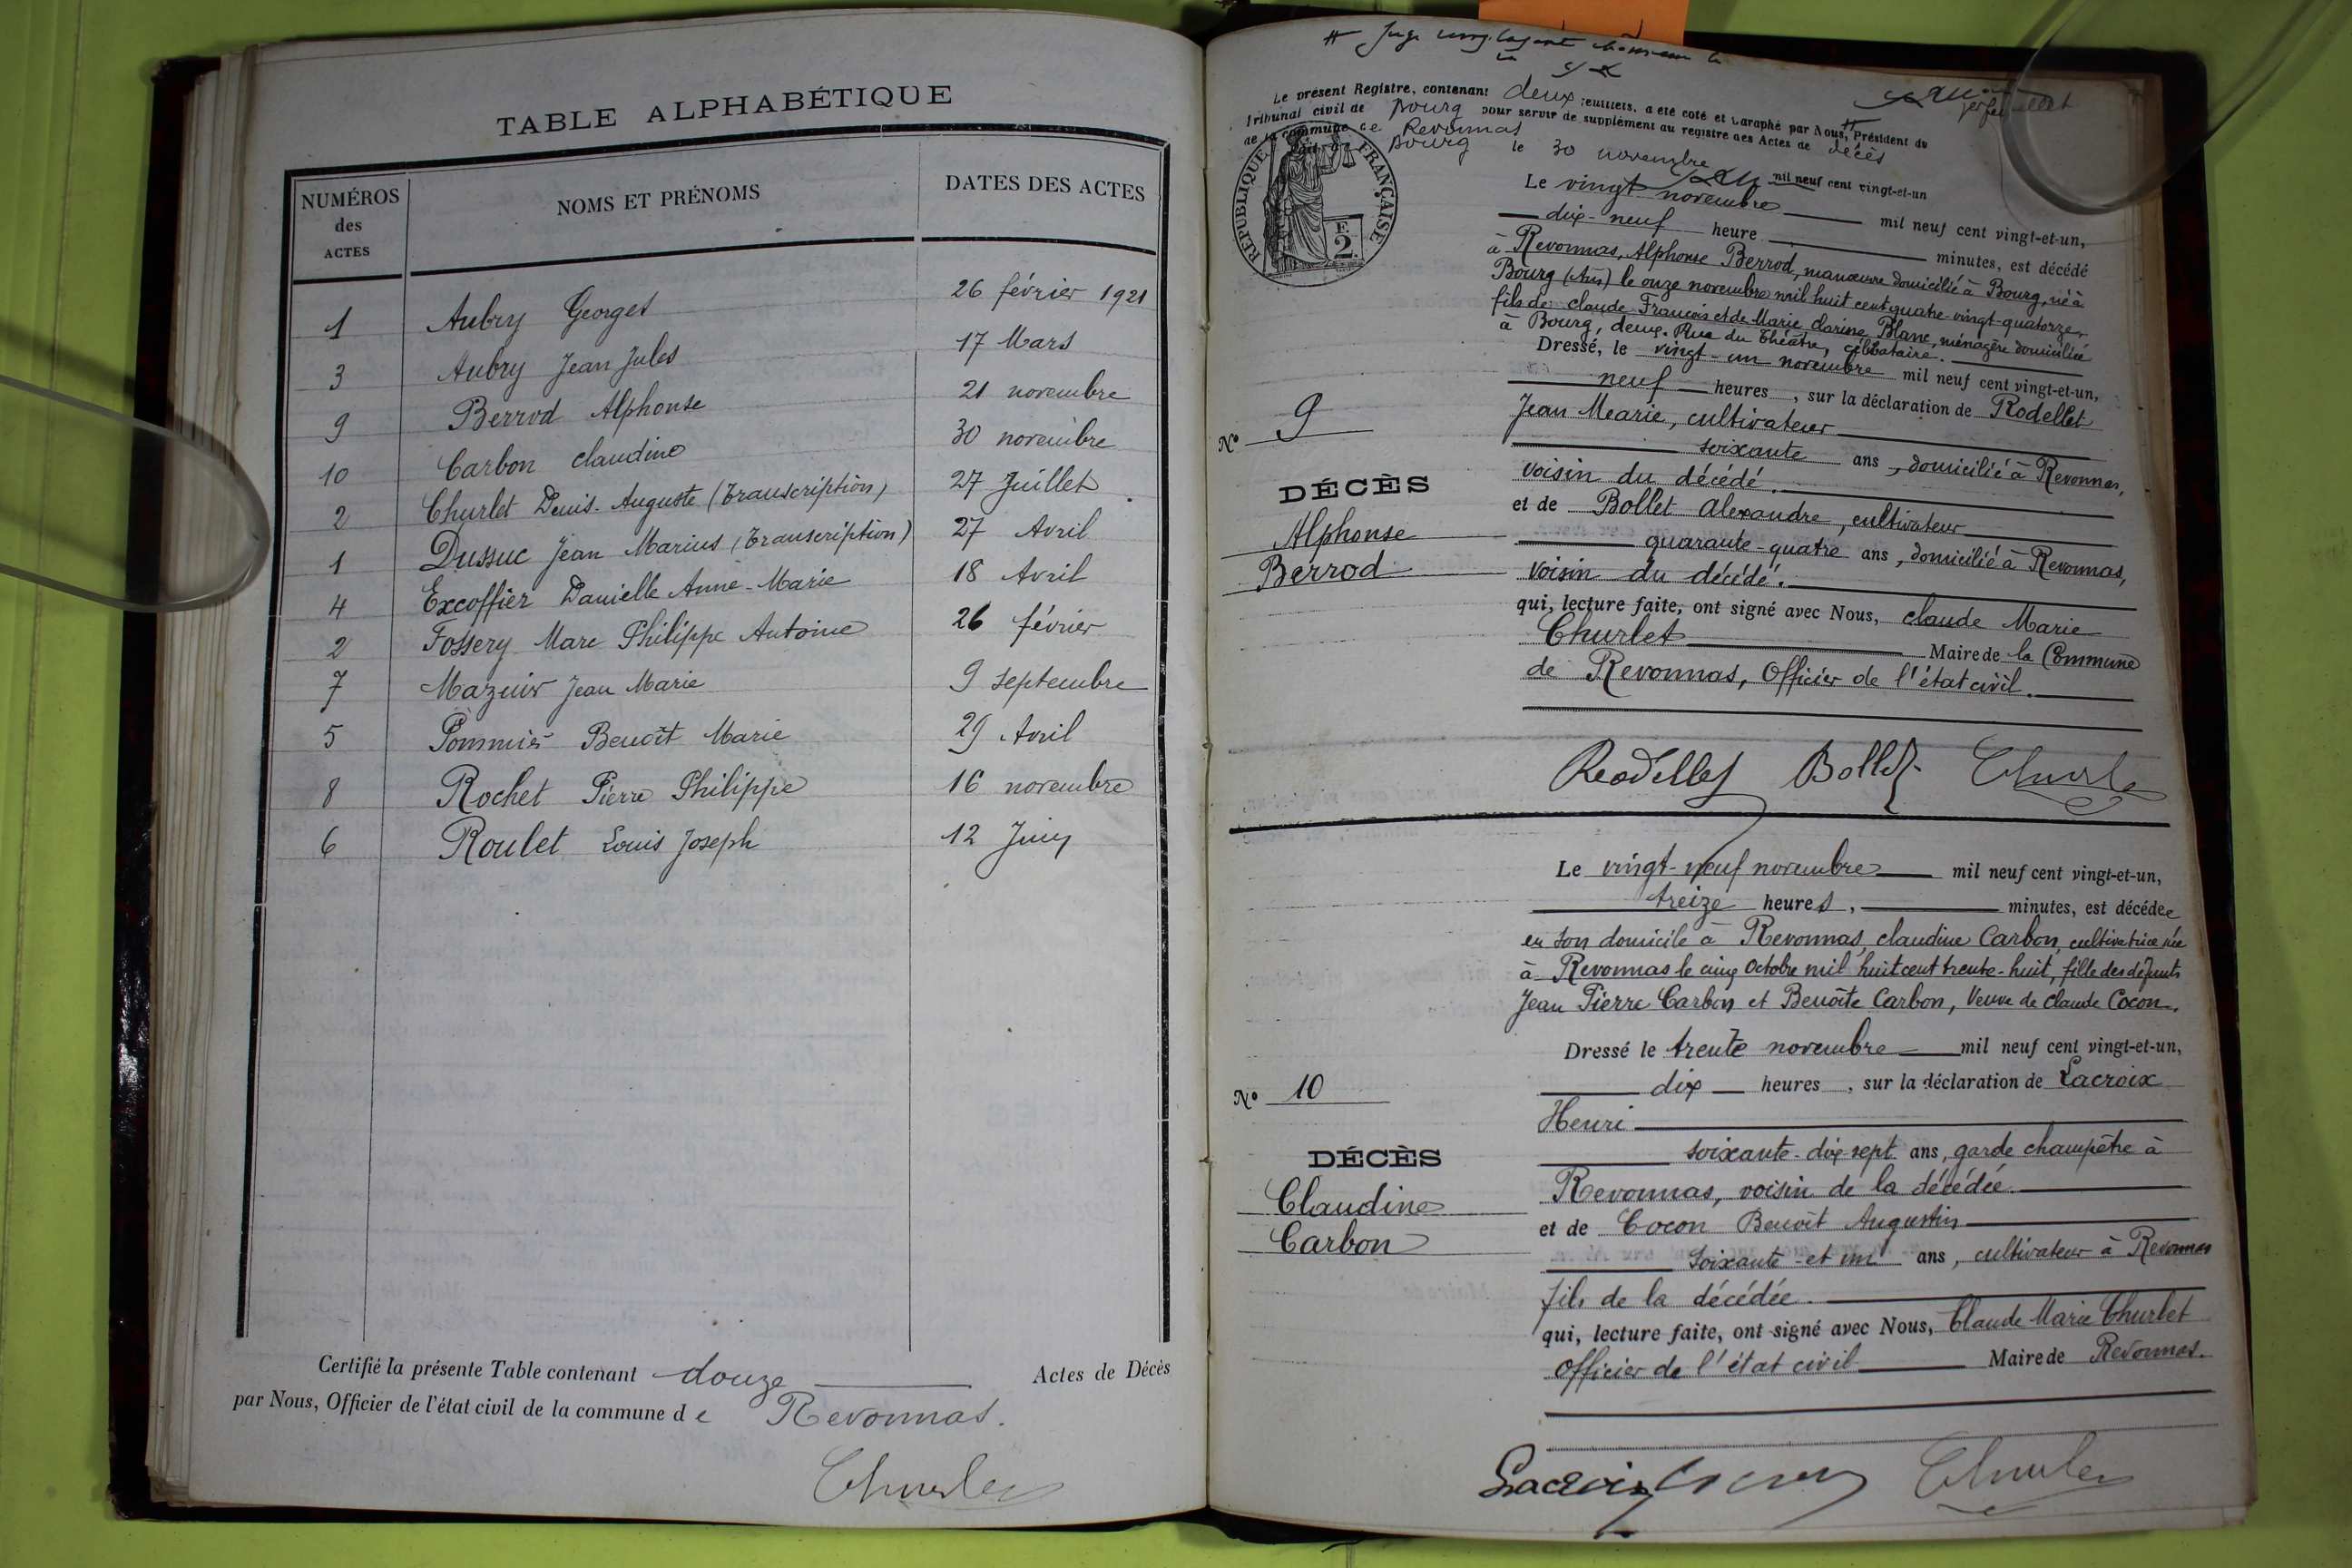 TABLE ALPHABÉTIQUE
NUMÉROS
des
ACTES
NOMS ET PRÉNOMS
DATES DES ACTES
1 Aubry Georges 26 février 1921
3 Aubry Jean Jules 17 Mars
9 Berrod Alphonse 21 novembre
10 Carbon Claudine 30 novembre
2 Churlet Denis-Auguste (Transcription) 27 Juillet
1 Dussuc Jean Marius (Transcription) 27 Avril
4 Excoffier Danielle Anne-Marie 18 Avril
2 Fossery Marc Philippe Antoine 26 février
7 Mazuir Jean Marie 9 septembre
5 Pommier Benoît Marie 29 Avril
8 Rochet Pierre Philippe 16 novembre
6 Roulet Louis Joseph 12 Juin
Certifié la présente Table contenant douze Actes de Décès
par Nous, Officier de l'état civil de la commune de Revonnas.
Churlet
# Juge
Le présent Registre, contenant deux feuillets, a été coté et paraphé par Nous, # Président du
Tribunal civil de Bourg pour servir de supplément au registre des Actes de décès
de la commune de Revonnas
Bourg le 30 novembre mil neuf cent vingt-et-un
RÉPUBLIQUE FRANÇAISE
F.
2.
Le vingt novembre mil neuf cent vingt-et-un,
dix-neuf heure minutes, est décédé
à Revonnas, Alphonse Berrod, manœuvre domicilié à Bourg, né à
Bourg (Ain) le onze novembre mil huit cent quatre-vingt-quatorze,
fils de Claude François et de Marie Clarine Blanc, ménagère domiciliée
à Bourg, deux, Rue du Théâtre, célibataire.
Dressé, le vingt-un novembre mil neuf cent vingt-et-un,
neuf heures, sur la déclaration de Rodellet
Jean Marie, cultivateur
soixante ans, domicilié à Revonnas,
voisin du décédé.
et de Bollet Alexandre, cultivateur
quarante-quatre ans, domicilié à Revonnas,
voisin du décédé.
qui, lecture faite, ont signé avec Nous, Claude Marie
Churlet Maire de la Commune
de Revonnas, Officier de l'état civil.
N° 9
DÉCÈS
Alphonse
Berrod
Rodellet Bollet Churlet
Le vingt-neuf novembre mil neuf cent vingt-et-un,
treize heures, minutes, est décédée
en son domicile à Revonnas, Claudine Carbon, cultivatrice née
à Revonnas le cinq Octobre mil huit cent trente-huit, fille des défunts
Jean Pierre Carbon et Benoîte Carbon, Veuve de Claude Cocon.
Dressé le trente novembre mil neuf cent vingt-et-un,
dix heures, sur la déclaration de Lacroix
Henri
soixante-dix-sept ans, garde champêtre à
Revonnas, voisin de la décédée.
et de Cocon Benoît Augustin
soixante-et-un ans, cultivateur à Revonnas
fils de la décédée.
qui, lecture faite, ont signé avec Nous, Claude Marie Churlet
Officier de l'état civil Maire de Revonnas.
N° 10
DÉCÈS
Claudine
Carbon
Lacroix Cocon Churlet